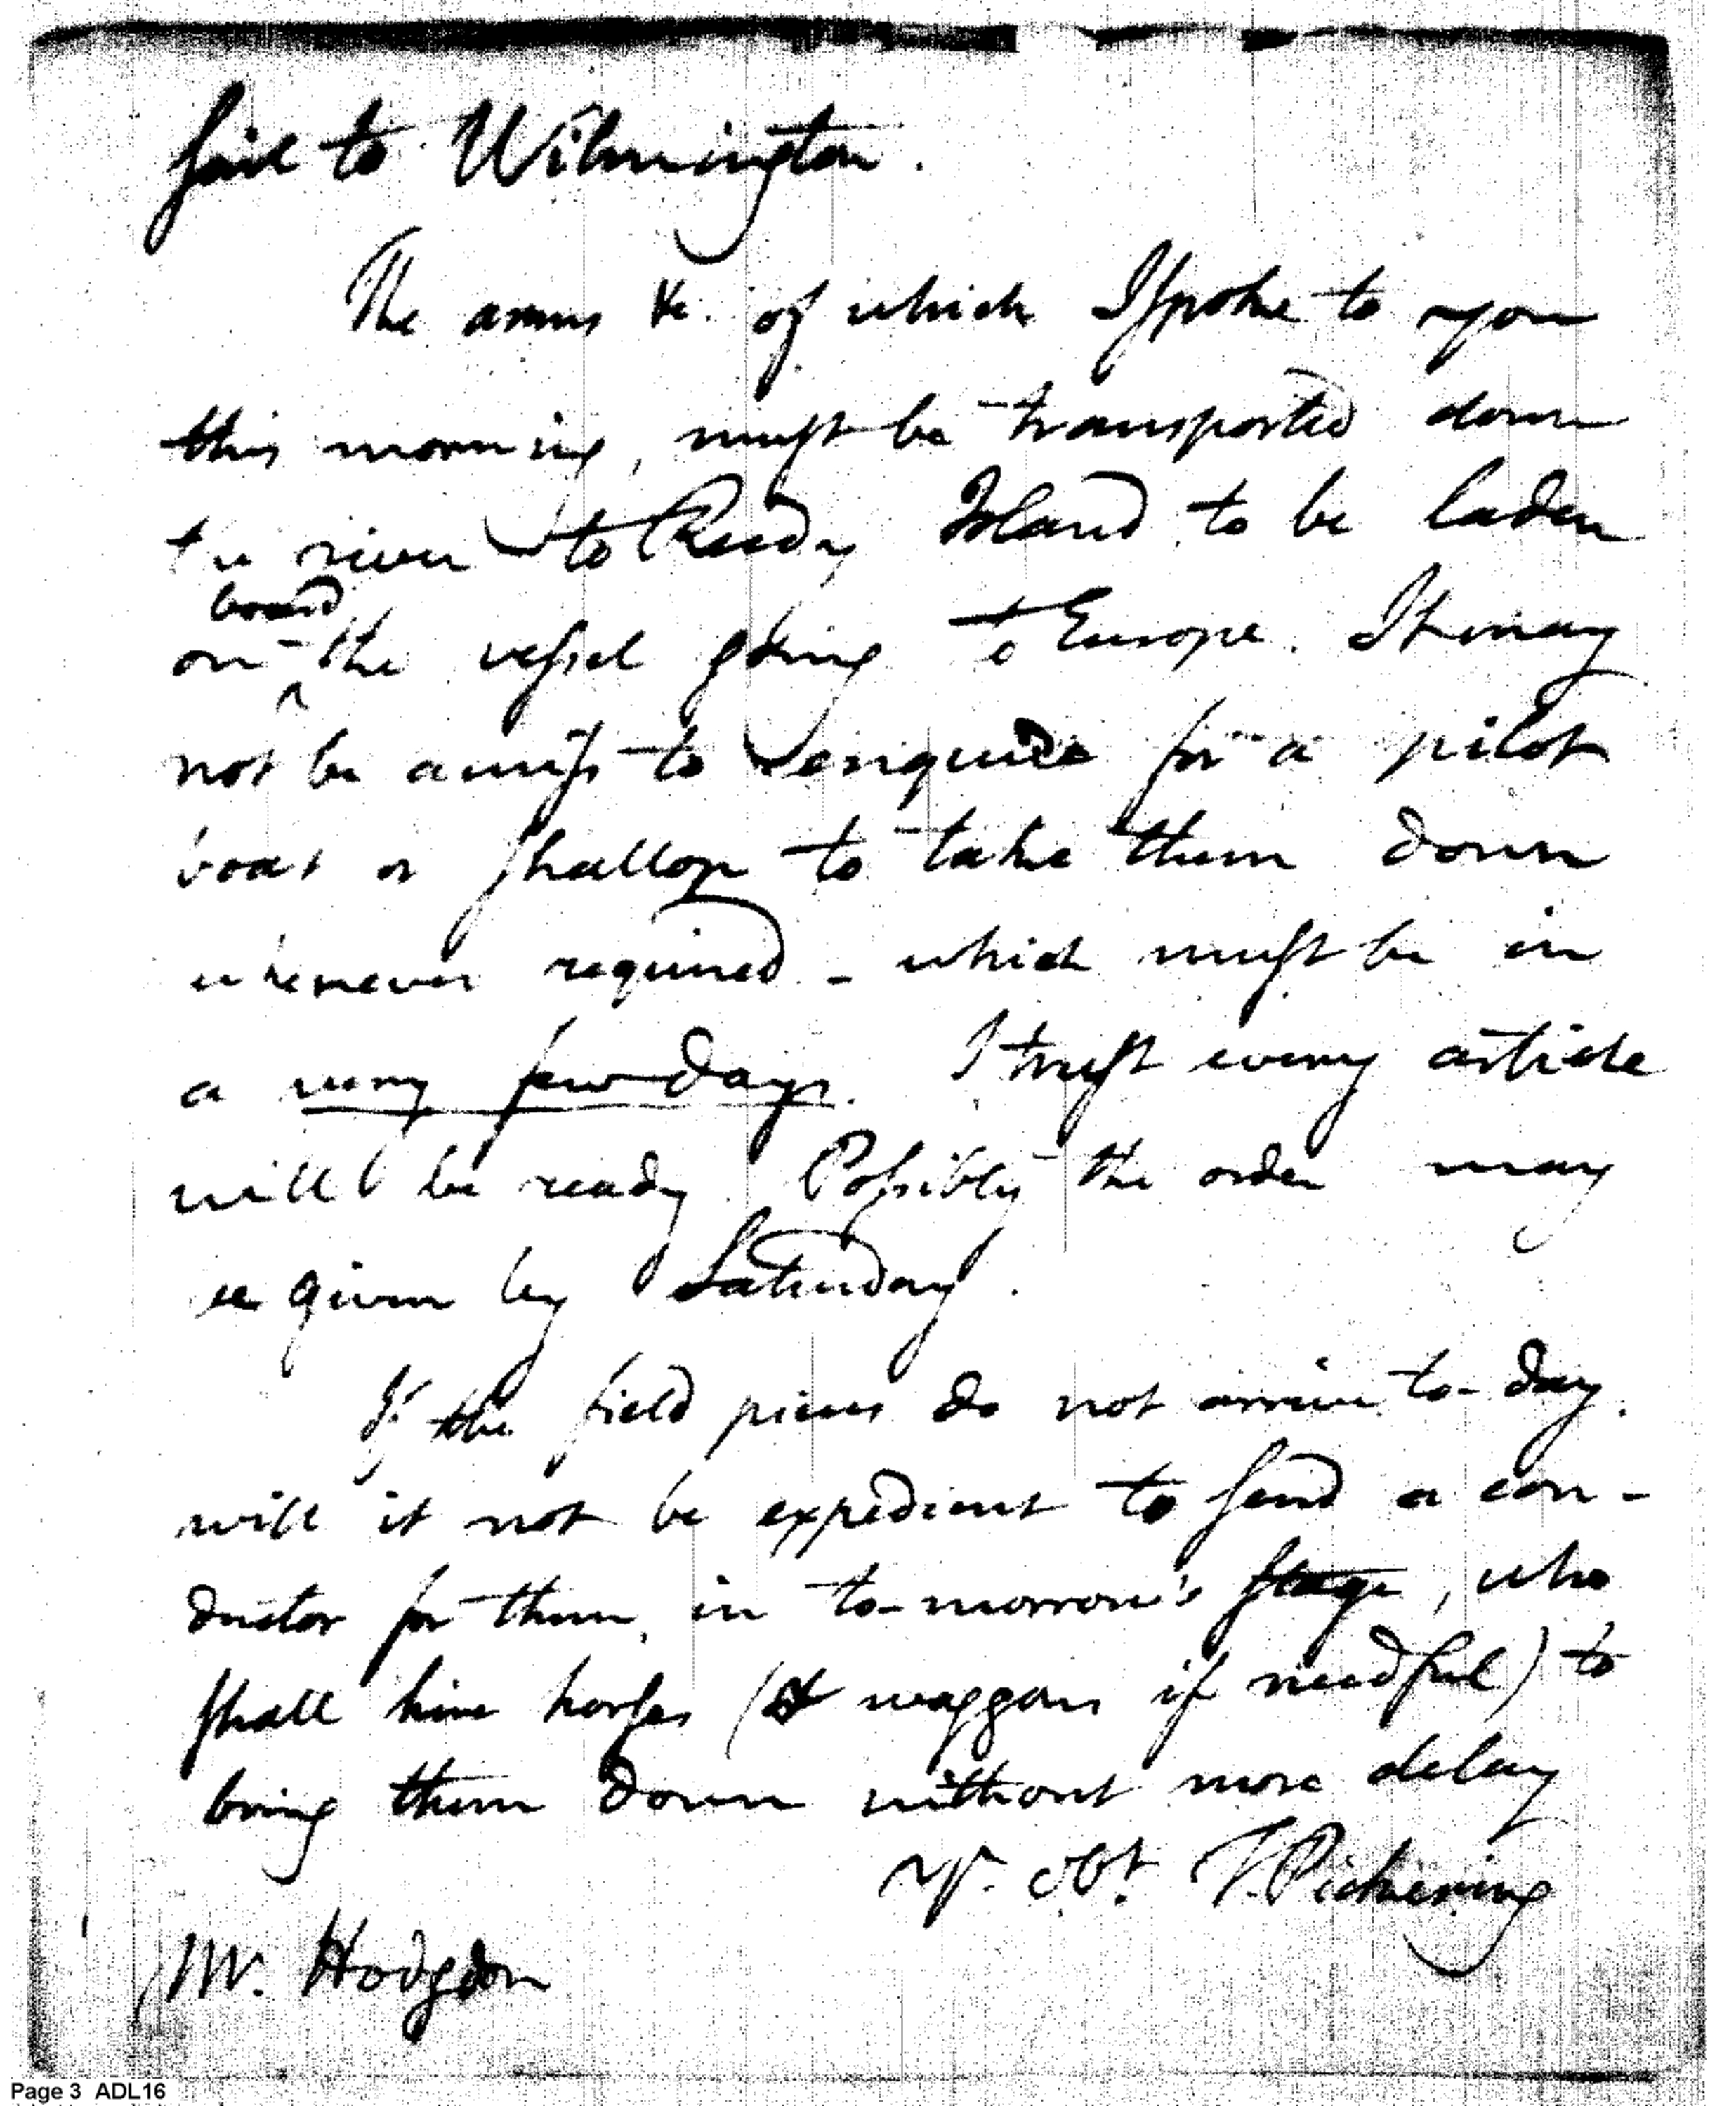 sail to Wilmington.
The arms &c. of which I spoke to you
this morning, must be transported down
the river to Reedy Island to be laden
board
on the vessel going to Europe. It may
not be amiss to enquire for a pilot
boat or shallop to take them down
whenever required - which must be in
a very few days. I trust every article
will be ready. Possibly the order may
be given by Saturday.
If the field pieces do not arrive to-day.
will it not be expedient to send a con-
ductor for them, in to-morrow's stage, who
shall hire horses (& waggons if needful) to
bring them down without more delay
Yr. obt. T. Pickering
Mr. Hodgdon
Page 3 ADL16